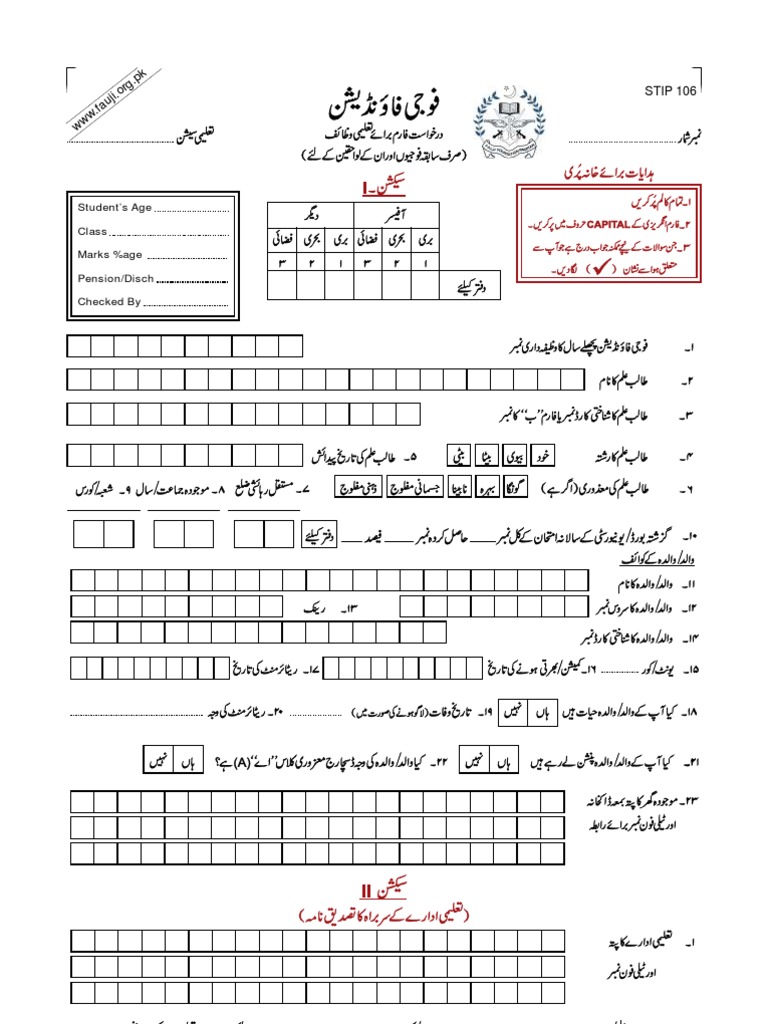 www.fauji.org.pk
STIP 106
فوجی فاؤنڈیشن
درخواست فارم برائے تعلیمی وظائف
(صرف سابقہ فوجیوں اور ان کے لواحقین کے لئے)
نمبر شمار
تعلیمی سیشن
سیکشن ۔I
ہدایات برائے خانہ پُری
۱۔ تمام کالم پُر کریں
۲۔ فارم انگریزی کے CAPITAL حروف میں پر کریں۔
۳۔ جن سوالات کے نیچے ممکنہ جواب درج ہے جو آپ سے
متعلق ہو اسے نشان (✓) لگا دیں۔
آفیسر دیگر
بری بحری فضائی بری بحری فضائی
۱ ۲ ۳ ۱ ۲ ۳
دفتر کیلئے
Student's Age
Class
Marks %age
Pension/Disch
Checked By
۱۔ فوجی فاؤنڈیشن پچھلے سال کا وظیفہ داری نمبر
۲۔ طالب علم کا نام
۳۔ طالب علم کا شناختی کارڈ نمبر یا فارم ”ب“ کا نمبر
۴۔ طالب علم کا رشتہ خود بیوی بیٹا بیٹی ۵۔ طالب علم کی تاریخ پیدائش
۶۔ طالب علم کی معذوری (اگر ہے) گونگا بہرہ نابینا جسمانی مفلوج ذہنی مفلوج ۷۔ مستقل رہائشی ضلع ۸۔ موجودہ جماعت/سال ۹۔ شعبہ/کورس
۱۰۔ گزشتہ بورڈ/یونیورسٹی کے سالانہ امتحان کے کل نمبر ____ حاصل کردہ نمبر ____ فیصد ____ دفتر کیلئے
والد/والدہ کے کوائف
۱۱۔ والد/والدہ کا نام
۱۲۔ والد/والدہ کا سروس نمبر ۱۳۔ رینک
۱۴۔ والد/والدہ کا شناختی کارڈ نمبر
۱۵۔ یونٹ/کور ۱۶۔ کمیشن/بھرتی ہونے کی تاریخ ۱۷۔ ریٹائرمنٹ کی تاریخ
۱۸۔ کیا آپ کے والد/والدہ حیات ہیں ہاں نہیں ۱۹۔ تاریخ وفات (لاگو ہونے کی صورت میں) ۲۰۔ ریٹائرمنٹ کی وجہ
۲۱۔ کیا آپ کے والد/والدہ پنشن لے رہے ہیں ہاں نہیں ۲۲۔ کیا والد/والدہ کی وجہ ڈسچارج معزوری کلاس ”اے“ (A) ہے؟ ہاں نہیں
۲۳۔ موجودہ گھر کا پتہ بمعہ ڈاکخانہ
اور ٹیلی فون نمبر برائے رابطہ
سیکشن II
(تعلیمی ادارے کے سربراہ کا تصدیق نامہ)
۱۔ تعلیمی ادارے کا پتہ
اور ٹیلی فون نمبر